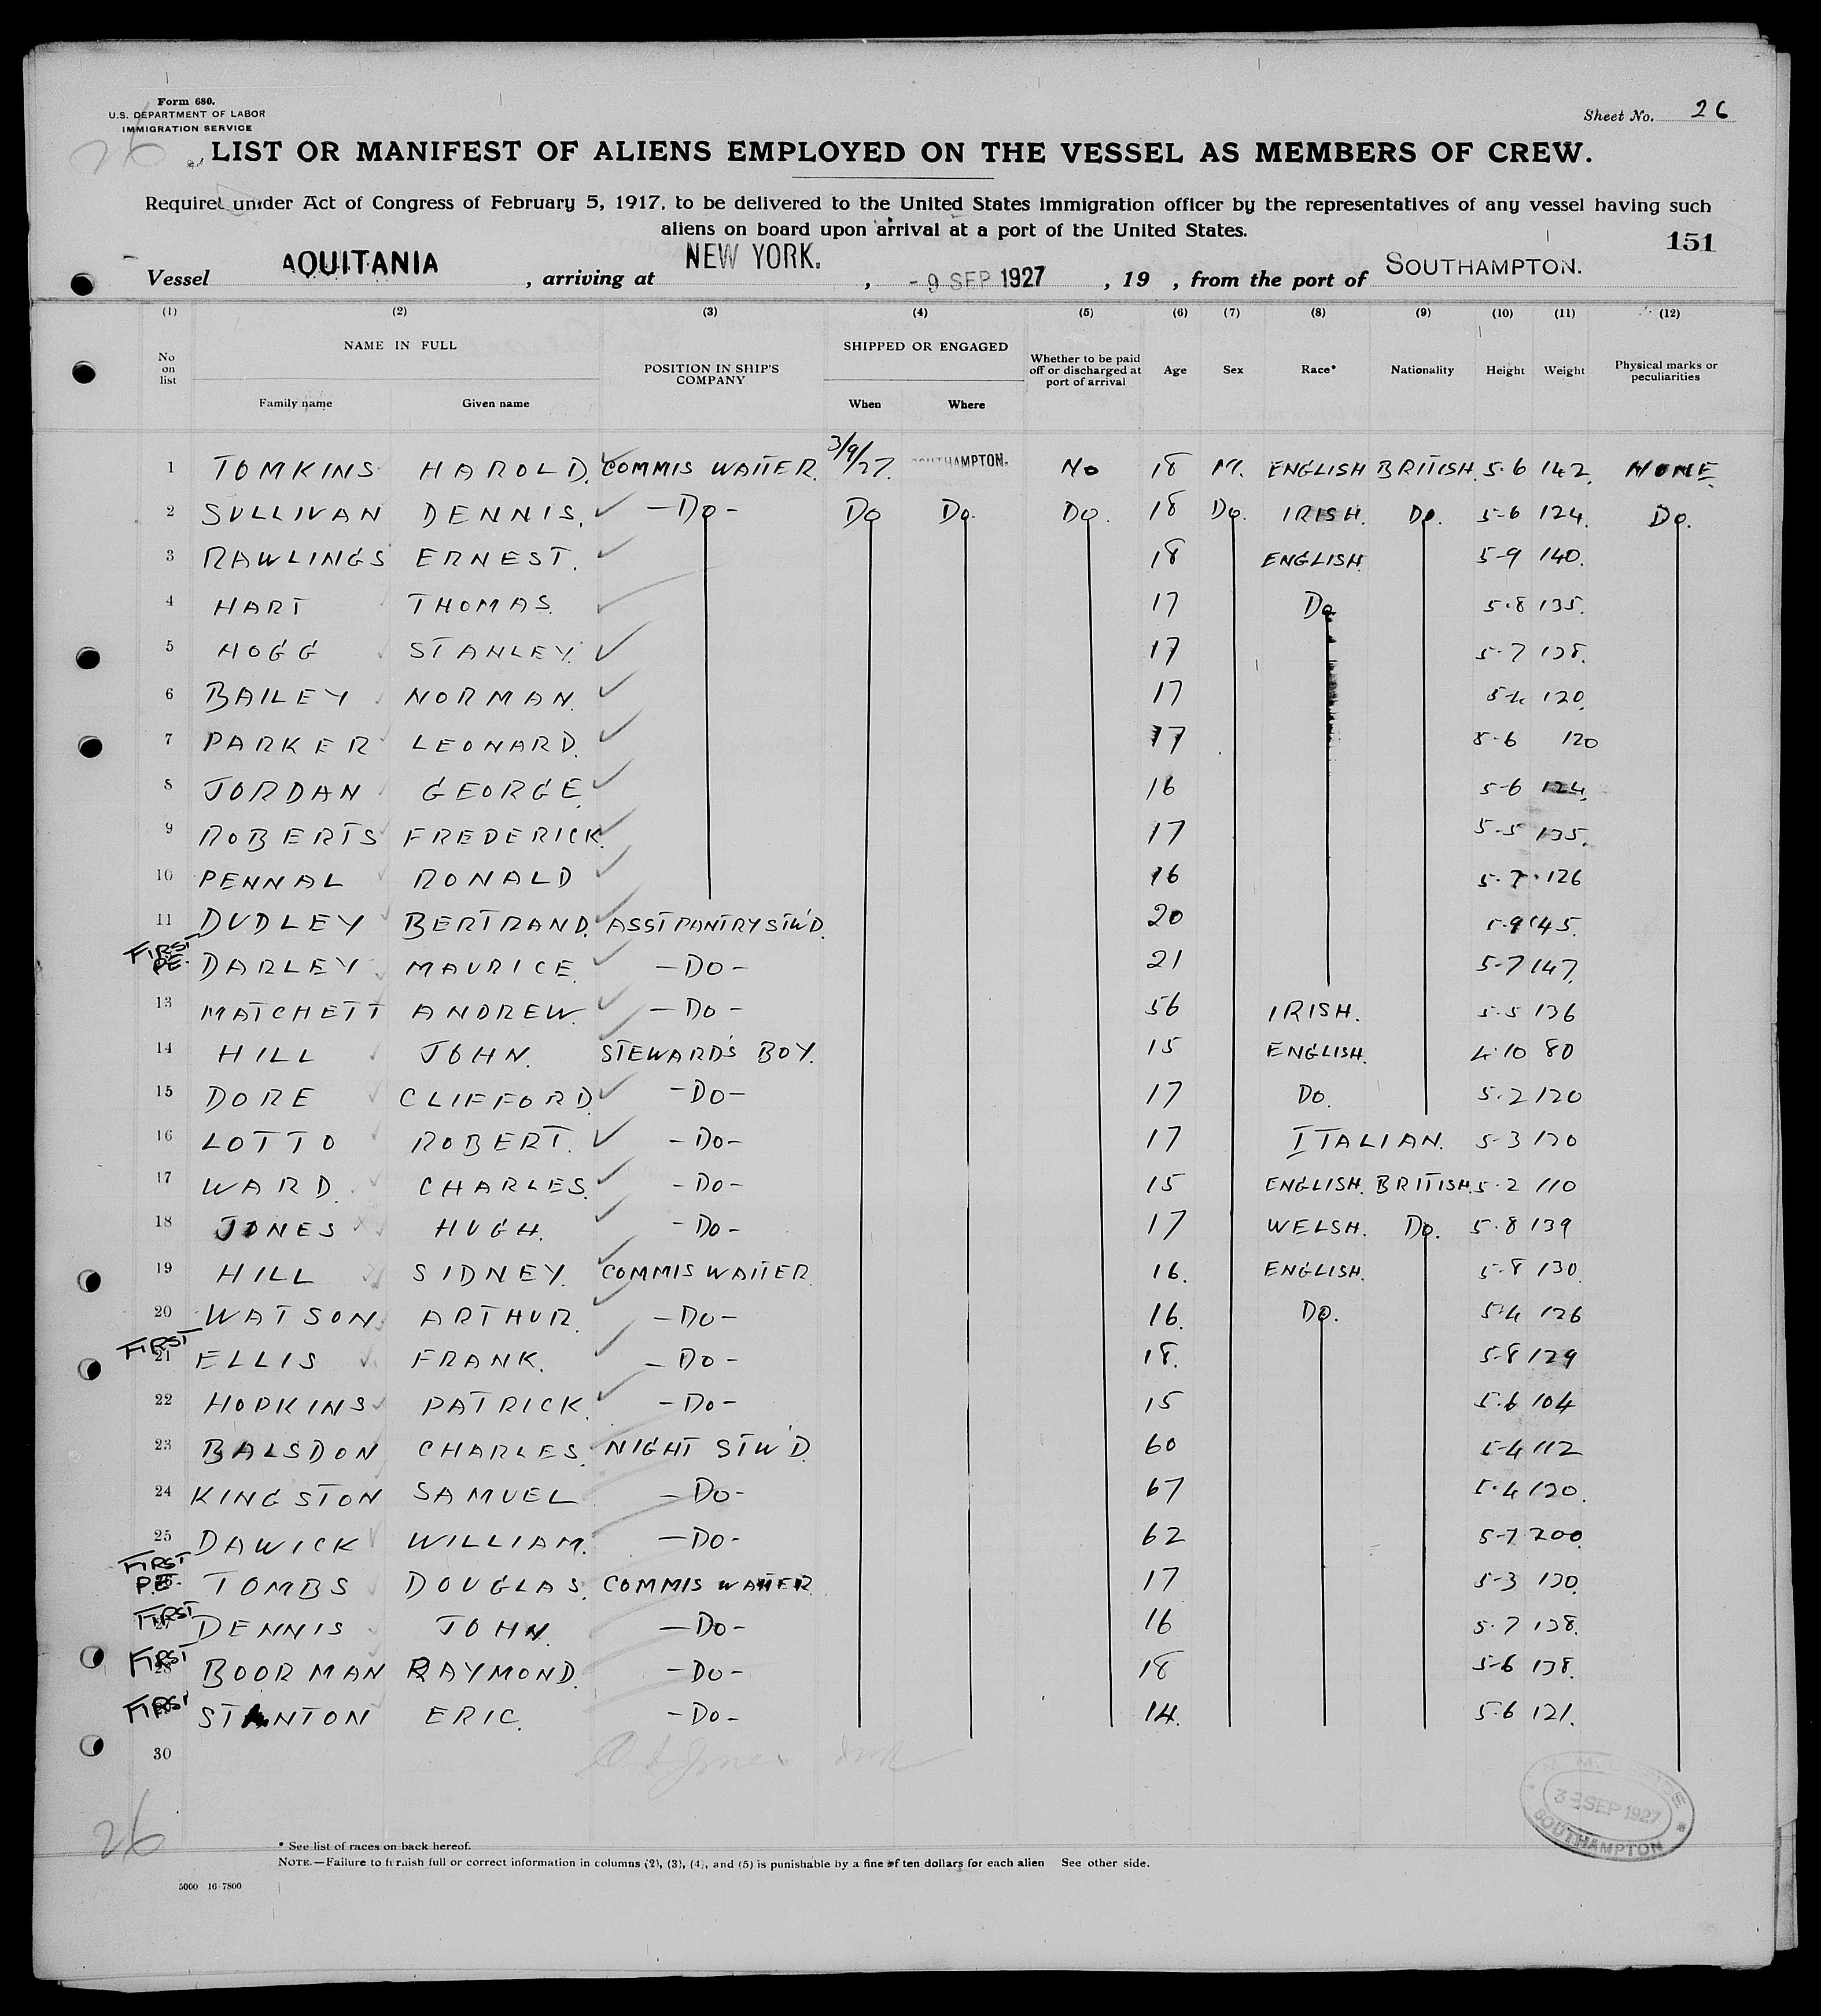 Form 680.
U.S. DEPARTMENT OF LABOR
IMMIGRATION SERVICE
Sheet No. 26
26
LIST OR MANIFEST OF ALIENS EMPLOYED ON THE VESSEL AS MEMBERS OF CREW.
Required under Act of Congress of February 5, 1917, to be delivered to the United States immigration officer by the representatives of any vessel having such
aliens on board upon arrival at a port of the United States.
151
Vessel AQUITANIA, arriving at NEW YORK., - 9 SEP 1927, 19 , from the port of SOUTHAMPTON.
(1) (2) (3) (4) (5) (6) (7) (8) (9) (10) (11) (12)
No on list NAME IN FULL Family name Given name POSITION IN SHIP'S COMPANY SHIPPED OR ENGAGED When Where Whether to be paid off or discharged at port of arrival Age Sex Race* Nationality Height Weight Physical marks or peculiarities
1 TOMKINS HAROLD. COMMIS WAITER. 3/9/27. SOUTHAMPTON. No 18 M. ENGLISH BRITISH. 5.6 142. NONE.
2 SULLIVAN DENNIS. -Do- Do Do. Do. 18 Do. IRISH. Do. 5-6 124. Do.
3 RAWLINGS ERNEST. 18 ENGLISH. 5-9 140.
4 HART THOMAS. 17 Do 5.8 135.
5 HOGG STANLEY. 17 5-7 138.
6 BAILEY NORMAN. 17 5-4 120.
7 PARKER LEONARD. 17 5-6 120
8 JORDAN GEORGE. 16 5-6 124.
9 ROBERTS FREDERICK. 17 5-5 135.
10 PENNAL RONALD 16 5.7 126
11 DUDLEY BERTRAND. ASST PANTRY STW'D. 20 5-9 145.
FIRST PE. DARLEY MAURICE. -Do- 21 5-7 147.
13 MATCHETT ANDREW. -Do- 56 IRISH. 5.5 136
14 HILL JOHN. STEWARD'S BOY. 15 ENGLISH. 4.10 80
15 DORE CLIFFORD. -Do- 17 Do. 5.2 120
16 LOTTO ROBERT. -Do- 17 ITALIAN. 5-3 130
17 WARD. CHARLES. -Do- 15 ENGLISH. BRITISH. 5-2 110
18 JONES HUGH. -Do- 17 WELSH. Do. 5.8 139
19 HILL SIDNEY. COMMIS WAITER. 16. ENGLISH. 5-8 130.
20 WATSON. ARTHUR. -Do- 16. Do. 5-4 126
FIRST 21 ELLIS FRANK. -Do- 18. 5-8 129
22 HOPKINS PATRICK. -Do- 15 5.6 104
23 BALSDON CHARLES. NIGHT STW'D. 60 5-4 112
24 KINGSTON SAMUEL -Do- 67 5.4 130.
25 DAWICK WILLIAM. -Do- 62 5-7 200.
FIRST P.E. TOMBS DOUGLAS. COMMIS WAITER 17 5-3 130.
FIRST 27 DENNIS JOHN. -Do- 16 5.7 138.
FIRST 28 BOORMAN RAYMOND. -Do- 18 5-6 138.
FIRST STANTON ERIC. -Do- 14. 5.6 121.
30
3 - SEP 1927
SOUTHAMPTON
26
* See list of races on back hereof.
NOTE.—Failure to furnish full or correct information in columns (2), (3), (4), and (5) is punishable by a fine of ten dollars for each alien See other side.
5000 16-7800